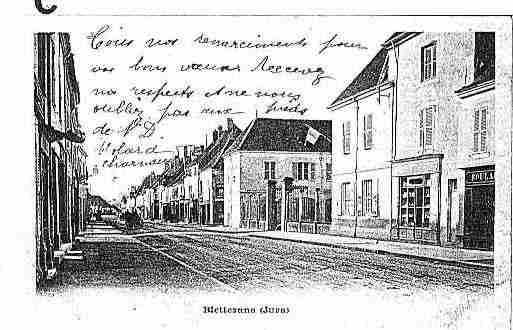 Tous nos remerciements pour
vos bons vœux Recevez
nos respects et ne nous
oubliez pas aux pieds
de N. D
BOULA
Bletterans (Jura)